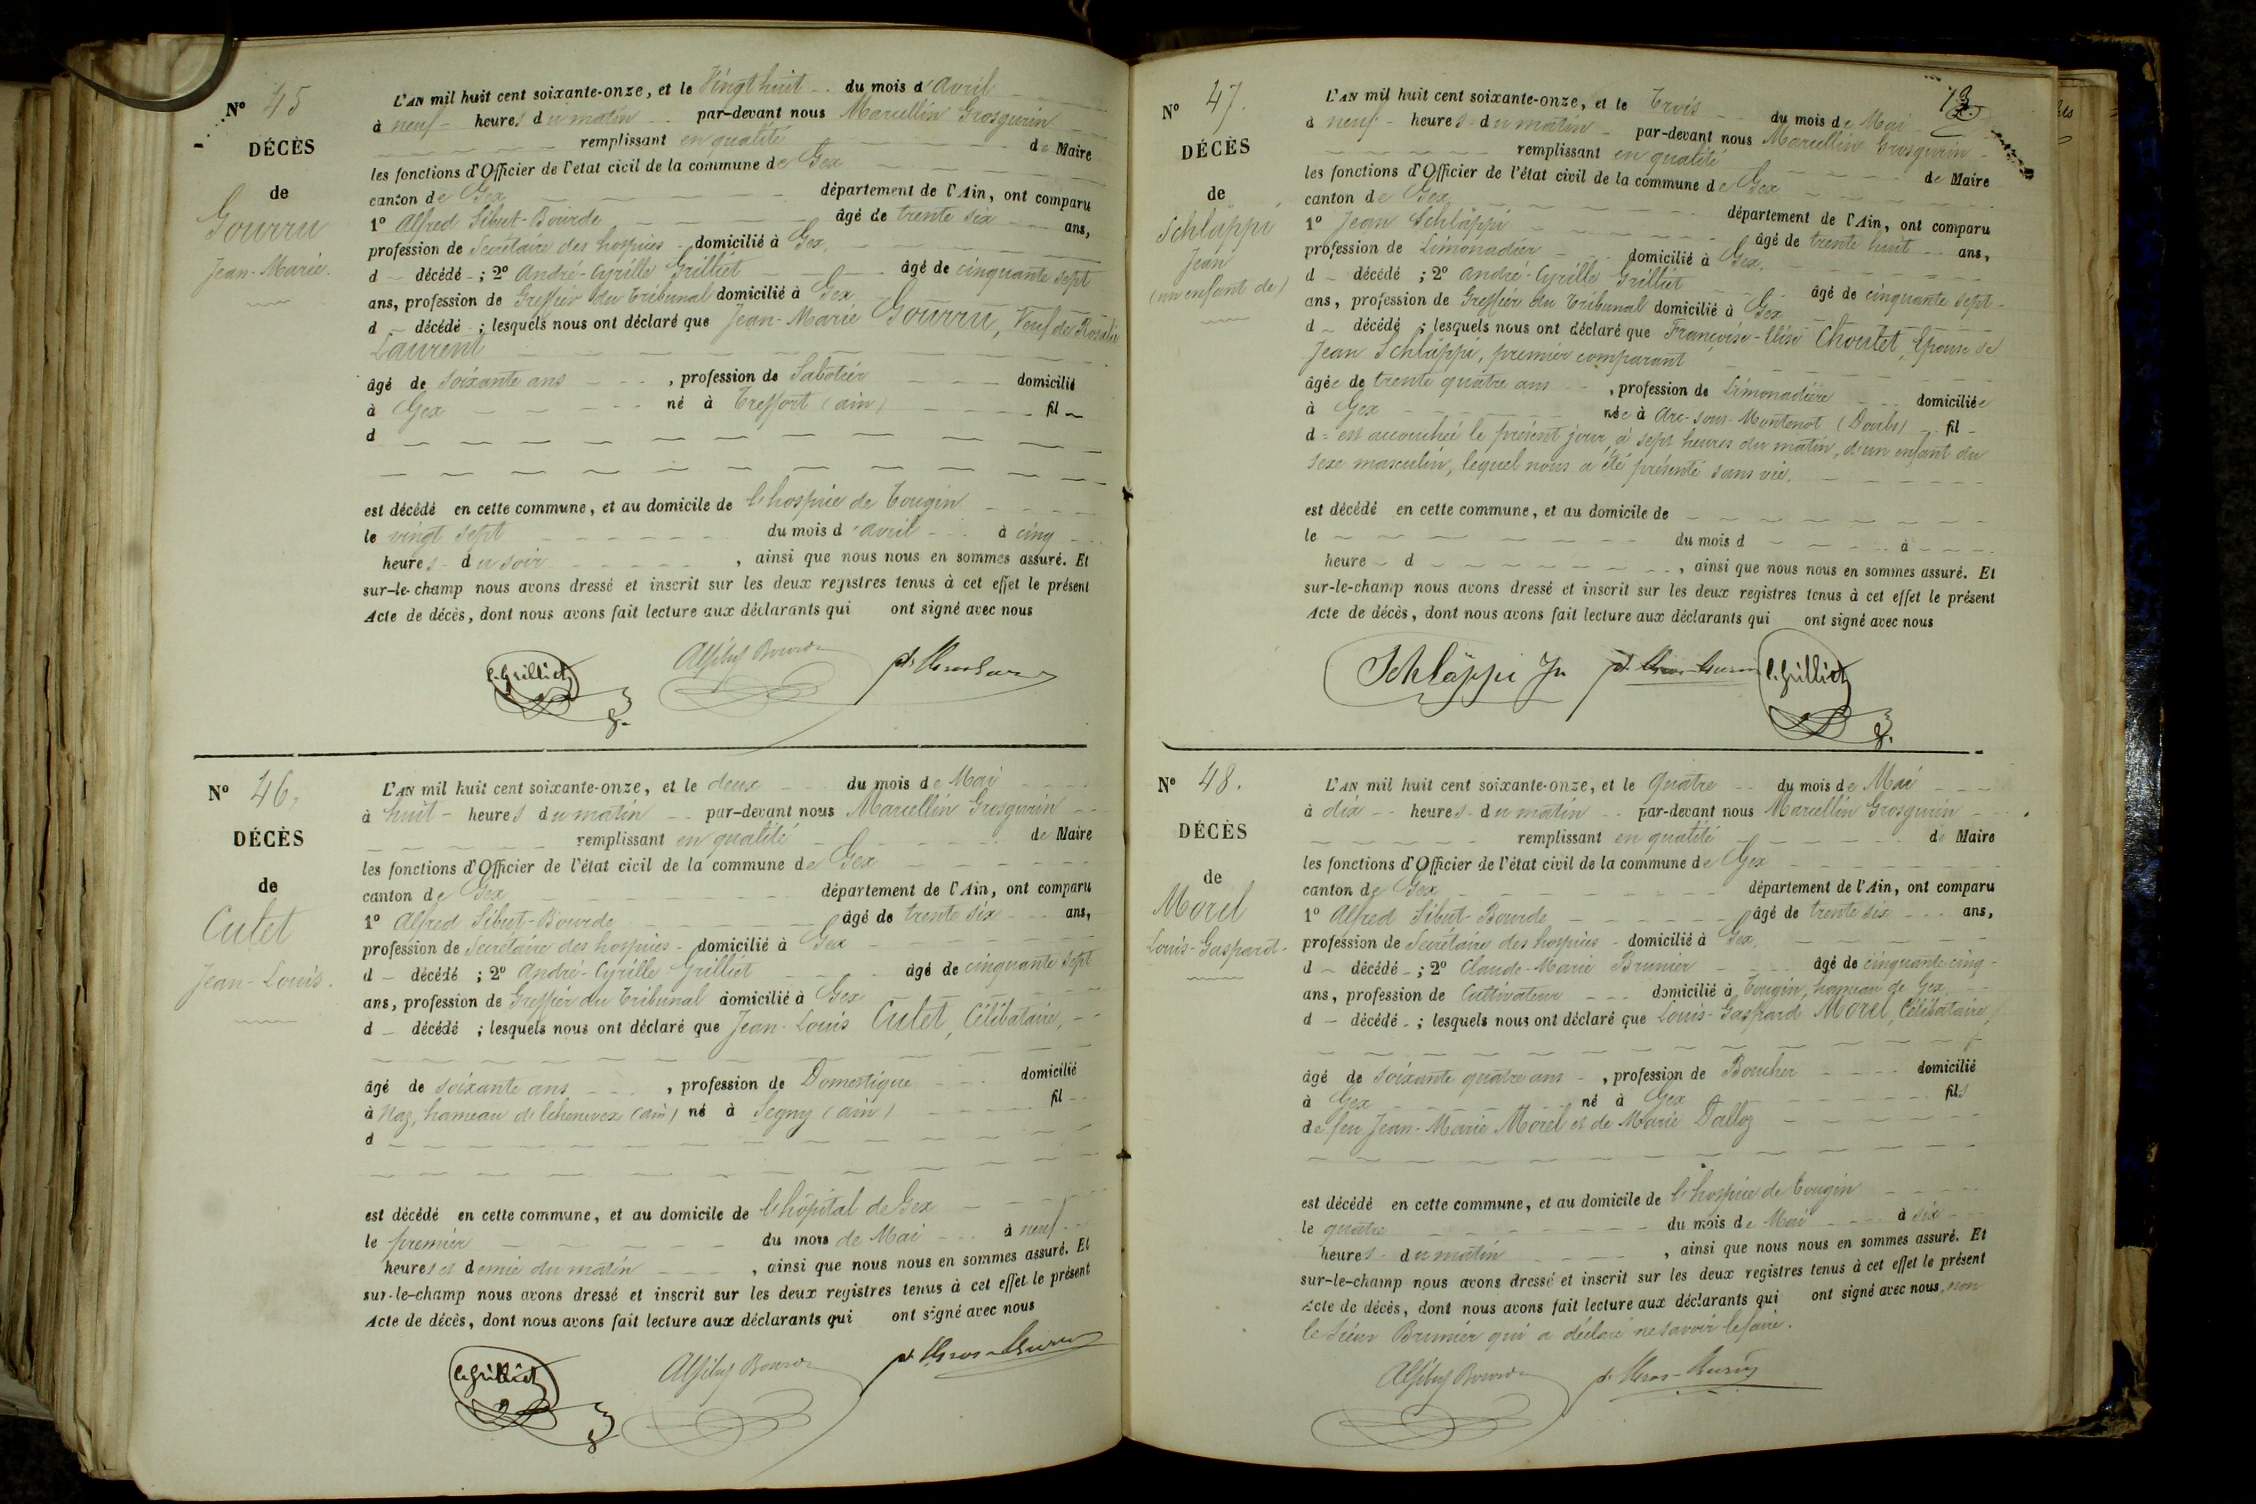 N° 45
DÉCÈS
de
Gourru
Jean-Marie.
L'AN mil huit cent soixante-onze, et le Vingt huit du mois d'avril
à neuf heures du matin par-devant nous Marcellin Grosgurin
remplissant en qualité de Maire
les fonctions d'Officier de l'état civil de la commune de Gex
canton de Gex département de l'Ain, ont comparu
1° Alfred Sibut-Bourde âgé de trente six ans,
profession de Secrétaire des hospices domicilié à Gex,
d décédé ; 2° André-Cyrille Grilliet âgé de cinquante sept
ans, profession de Greffier du Tribunal domicilié à Gex
d décédé ; lesquels nous ont déclaré que Jean-Marie Gourru, Veuf de Rosalie
Laurent
âgé de soixante ans , profession de Sabotier domicilié
à Gex né à Treffort (ain) fil
d
est décédé en cette commune, et au domicile de l'hospice de Tougin
le vingt sept du mois d'avril à cinq
heures du soir , ainsi que nous nous en sommes assuré. Et
sur-le-champ nous avons dressé et inscrit sur les deux registres tenus à cet effet le présent
Acte de décès, dont nous avons fait lecture aux déclarants qui ont signé avec nous
C. Grilliet Alf Sibut Bourde
N° 46.
DÉCÈS
de
Culet
Jean-Louis.
L'AN mil huit cent soixante-onze, et le deux du mois de Mai
à huit heures du matin par-devant nous Marcellin Grosgurin
remplissant en qualité de Maire
les fonctions d'Officier de l'état civil de la commune de Gex
canton de Gex département de l'Ain, ont comparu
1° Alfred Sibut-Bourde âgé de trente six ans,
profession de Secrétaire des hospices domicilié à Gex
d décédé ; 2° André-Cyrille Grilliet âgé de cinquante sept
ans, profession de Greffier du Tribunal domicilié à Gex
d décédé ; lesquels nous ont déclaré que Jean-Louis Culet, Célibataire,
âgé de soixante ans , profession de Domestique domicilié
à Naz, hameau d'Echenevex (ain) né à Segny (ain) fil
d
est décédé en cette commune, et au domicile de l'hôpital de Gex
le premier du mois de Mai à neuf
heures et demie du matin , ainsi que nous nous en sommes assuré. Et
sur-le-champ nous avons dressé et inscrit sur les deux registres tenus à cet effet le présent
Acte de décès, dont nous avons fait lecture aux déclarants qui ont signé avec nous
C. Grilliet Alf Sibut Bourde
N° 47.
DÉCÈS
de
Schläppi
Jean
(un enfant de)
L'AN mil huit cent soixante-onze, et le Trois du mois de Mai
à neuf heures du matin par-devant nous Marcellin Grosgurin
remplissant en qualité de Maire
les fonctions d'Officier de l'état civil de la commune de Gex
canton de Gex département de l'Ain, ont comparu
1° Jean Schläppi âgé de trente huit ans,
profession de Limonadier domicilié à Gex,
d décédé ; 2° André-Cyrille Grilliet âgé de cinquante sept
ans, profession de Greffier du Tribunal domicilié à Gex
d décédé ; lesquels nous ont déclaré que Françoise-Elise Choulet, Epouse de
Jean Schläppi, premier comparant
âgée de trente quatre ans , profession de Limonadière domiciliée
à Gex née à Arc-sous-Montenot (Doubs) fil
d est accouchée le présent jour, à sept heures du matin, d'un enfant du
sexe masculin, lequel nous a été présenté sans vie.
est décédé en cette commune, et au domicile de
le du mois d à
heure d , ainsi que nous nous en sommes assuré. Et
sur-le-champ nous avons dressé et inscrit sur les deux registres tenus à cet effet le présent
Acte de décès, dont nous avons fait lecture aux déclarants qui ont signé avec nous
Schläppi Jn C. Grilliet
N° 48.
DÉCÈS
de
Morel
Louis-Gaspard
L'AN mil huit cent soixante-onze, et le quatre du mois de Mai
à dix heures du matin par-devant nous Marcellin Grosgurin
remplissant en qualité de Maire
les fonctions d'Officier de l'état civil de la commune de Gex
canton de Gex département de l'Ain, ont comparu
1° Alfred Sibut-Bourde âgé de trente six ans,
profession de Secrétaire des hospices domicilié à Gex,
d décédé ; 2° Claude-Marie Brunier âgé de cinquante-cinq
ans, profession de Cultivateur domicilié à Tougin, hameau de Gex
d décédé ; lesquels nous ont déclaré que Louis-Gaspard Morel, Célibataire,
âgé de soixante quatre ans , profession de Boucher domicilié
à Gex né à Gex fils
de feu Jean-Marie Morel et de Marie Dalloz
est décédé en cette commune, et au domicile de l'hospice de Tougin
le quatre du mois de Mai à six
heures du matin , ainsi que nous nous en sommes assuré. Et
sur-le-champ nous avons dressé et inscrit sur les deux registres tenus à cet effet le présent
Acte de décès, dont nous avons fait lecture aux déclarants qui ont signé avec nous, non
le sieur Brunier qui a déclaré ne savoir le faire.
Alf Sibut Bourde